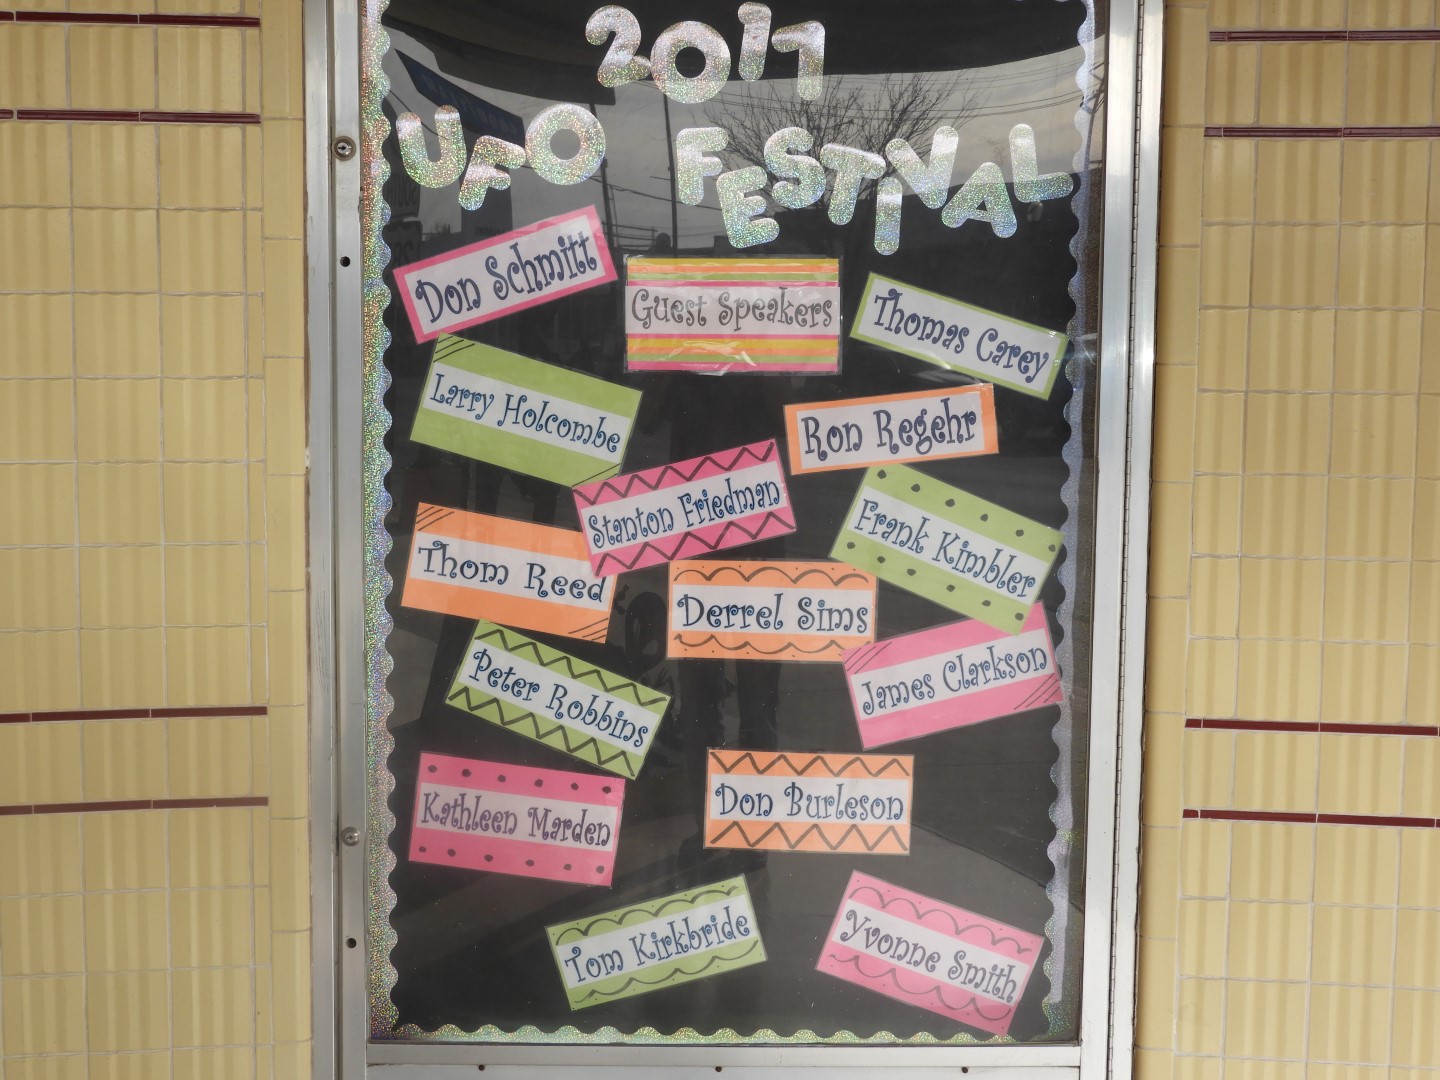 2017
UFO FESTIVAL
Don Schmitt
Guest Speakers
Thomas Carey
Larry Holcombe
Ron Regehr
Stanton Friedman
Frank Kimbler
Thom Reed
Derrel Sims
James Clarkson
Peter Robbins
Kathleen Marden
Don Burleson
Tom Kirkbride
Yvonne Smith